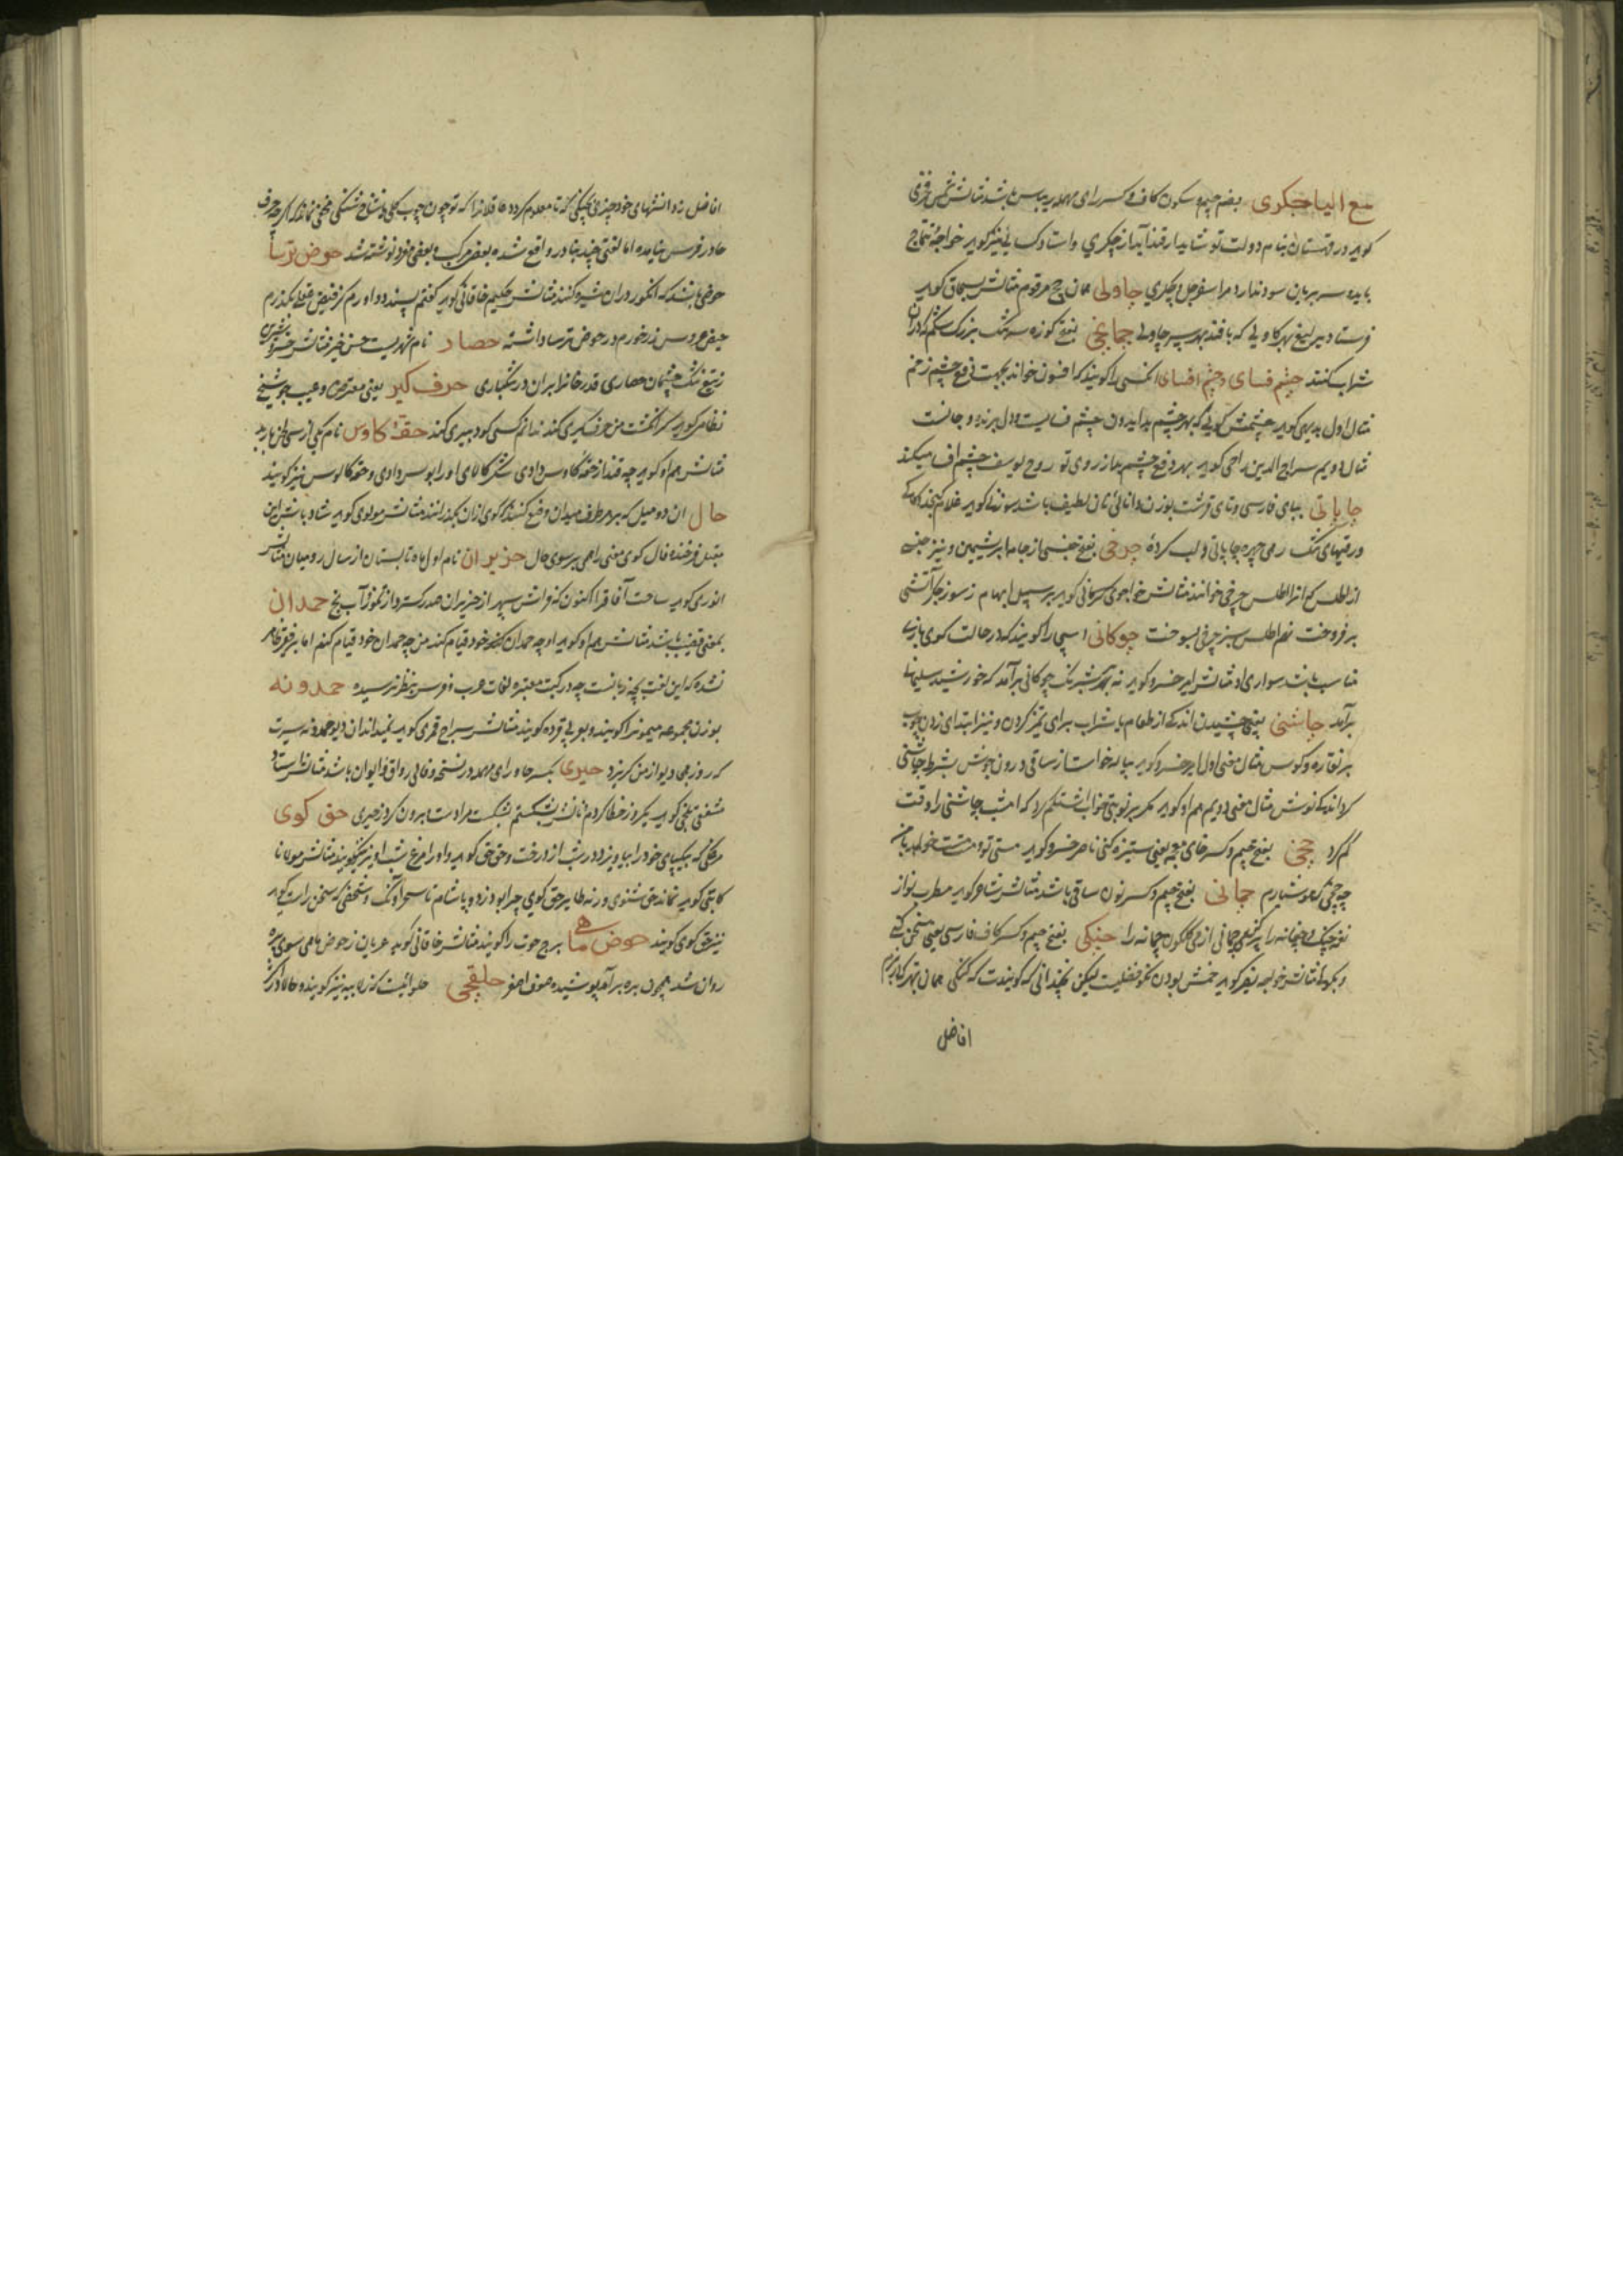 مع الیا جکری بضم جیم و سکون کاف و کسر رای مهمله ریباس باشد مثالش شمس فخری
گوید در قهستان بنام دولت تو شاید ار قند آید از چکری و استادک نیز گوید خواجه تتماج
باید سر بریان سود ندارد مرا سفرجل و چکری چاولی همان چچ مرقوم مثالش بسحاق گوید
فرستاد میر لیغ بهر کاولی که بافند بهر سپر چاولی چمانچی بفتح کوزه سر تنگ بزرگ شکم که در آن
شراب کنند چشم فسای و چشم افسای آنکسی را گویند که افسون خواند بجهت دفع چشم زخم
مثال اول بدیهی گوید چشمش گویی که بهر چشم بد ایدون چشم فسایست و دل برنده و جانست
مثال دویم سراج الدین راجی گوید بهر دفع چشم بد از روی تو روح یوسف چشم افسا میکند
چاپاتی ببای فارسی و تای قرشت بوزن دانائی نان لطیف باشد سوزنی گوید غلام
ورقهای تنک رمی چهره چاپاتی و لب کرده چرخی بفتح جنسی از جامه ابریشمین و نیز جنسی
از اطلس که آنرا اطلس چرخی خوانند مثالش خواجوی کرمانی گوید بر سبیل ابهام ز سوز جگر آتشی
بر فروخت نهم اطلس سبز چرخی بسوخت چوکانی اسپی را گویند که در حالت گوی بازی
مناسب باشد سواری او مثالش امیر خسرو گوید نه شبرنگ چوکانی برآمد که خورشید سلیمانی
برآمد چاشنی یعنی چشیدن اندکی از طعام یا شراب برای تمیز کردن و نیز ابتدای زدن چوب
بر نقاره و کوس مثال معنی اول امیر خسرو گوید پیاله خواست از ساقی درون جوش بشرط چاشنی
کرد اندکی نوش مثال معنی دویم هم او گوید مگر بر نوبتی خواب اشتلم کرد که امشب چاشنی را وقت
گم کرد چخی بفتح جیم و کسر خای معجمه یعنی ستیزه کنی ناصر خسرو گوید مستی تو و مست خواهد با من
چو چخی که هوشیارم چمانی بفتح جیم و کسر نون ساقی باشد مثالش شاعر گوید مطرب نواز
نغمه چنگ و چغانه را پر کن ای چمانی از می گلگون چمانه را چنبکی بفتح جیم و کسر کاف فارسی یعنی سخن کنی
و بکو مثالش خواجه گوید خمش بودن نکو فضلیست لیکن نچندانی که گویندت که گنگی همان بهتر که
افاضل
افاضل زو افتنهای خود چیزی بچنگی که تا معلوم گردد عاقلانرا که تو چون چوب کلی یا شاخ شنگی مخفی نماند اگرچه حرف
حا در فرس نیامده اما لغتی چند بنادر واقع شده بعضی مرکب و بعضی مفرد نوشته شد حوض ترسا
حوضی باشد که انگور در آن شیره کنند مثالش حکیم خاقانی گوید گفتم پسندد داورم کز فیض عقلی بگذرم
حیض عروس رز خورم در حوض ترسا داشته حصار نام شهریست حسن خیز مثالش خسرو
ز تیغ تنگ چشمان حصاری قدر خانرا بران در تنگباری حرف کیر یعنی معترض و عیب جو شیخ
نظامی گوید گر انگشت من حرف گیری کند ندانم کسی کو دبیری کند حقهٔ کاوس نام یکی از سی لحن باربد
مثالش هم او گوید چه قند از حقه کاوس دادی شکر کالای او را بوسه دادی و حقه کالوس نیز گویند
حال آن دو میل که بر دو طرف میدان وضع کنند که گوی از آن بگذرانند مثالش مولوی گوید شاد باش ای
مقبل فرخنده فال گوی معنی را همی بر سوی حال حزیران نام اول ماه تابستان از سال رومیان مثالش
انوری گوید ساحت آفاق را اکنون که فراش سپهر از حزیران صد ره گسترد از تموز آب یخ حمدان
بمعنی قضیب باشد مثالش هم او گوید او چه حمدان کند خود قیام کند من چه حمدان خود قیام کنم اما بر فقیر ظاهر
نشده که این لغت بچه زبانست چه در کتب معتبره لغات عرب و فرس بنظر نرسیده حمدونه
بوزن مجموعه میمونرا گویند و بعربی قرده گویند مثالش سراج قمری گوید نمیداند آن دیو حمدونه سیرت
که روز می دیو از من گریزد حیری بکسر حا و رای مهمله در نسخه وفائی رواق و ایوان باشد مثالش استاد
شفقی بلخی گوید یک روز خطا کردم نانش بشکستم بشکست مرا دست برون کرد ز حیری حق کوی
مرغکی که بیکپای خود را بیاویزد در شب از درخت و حق حق گوید و او را مرغ شب آویز نیز گویند مثالش مولانا
کاتبی گوید نماند حق شنوی ورنه طایر حق گوی چرا بود زده و پا شام تا سحر آونگ و شخصی که سخن راست گوید
نیز حق گوی گویند حوض ماهی برج حوت را گویند مثالش خاقانی گوید عریان ز حوض ماهی سوی بره
روان شد همچون بره برآمد پوشیده صوف اصفر حلقچی حلوائیست که زلابیه نیز گویند و حالا در کار